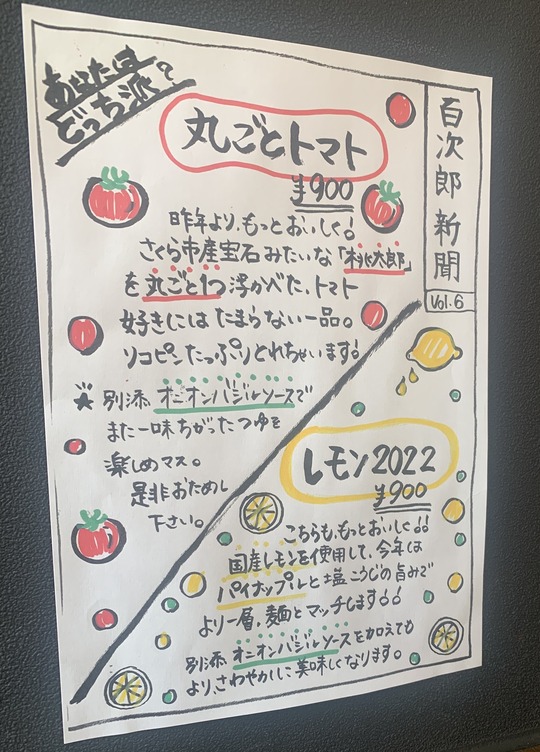 あなたは
どっち派?
百次郎新聞
Vol.6
丸ごとトマト
¥900
昨年より、もっとおいしく!
さくら市産宝石みたいな「桃太郎」
を丸ごと1つ浮かべた、トマト
好きにはたまらない一品。
リコピンたっぷりとれちゃいます!
★別添 オニオンバジルソースで
また一味ちがったつゆを
楽しめマス。
是非おためし
下さい。
レモン2022
¥900
こちらも、もっとおいしく!!
国産レモンを使用して、今年は
パイナップルと塩こうじの旨みで
より一層、麺とマッチします!!
別添 オニオンバジルソースを加えても
よりさわやかに美味しくなります。